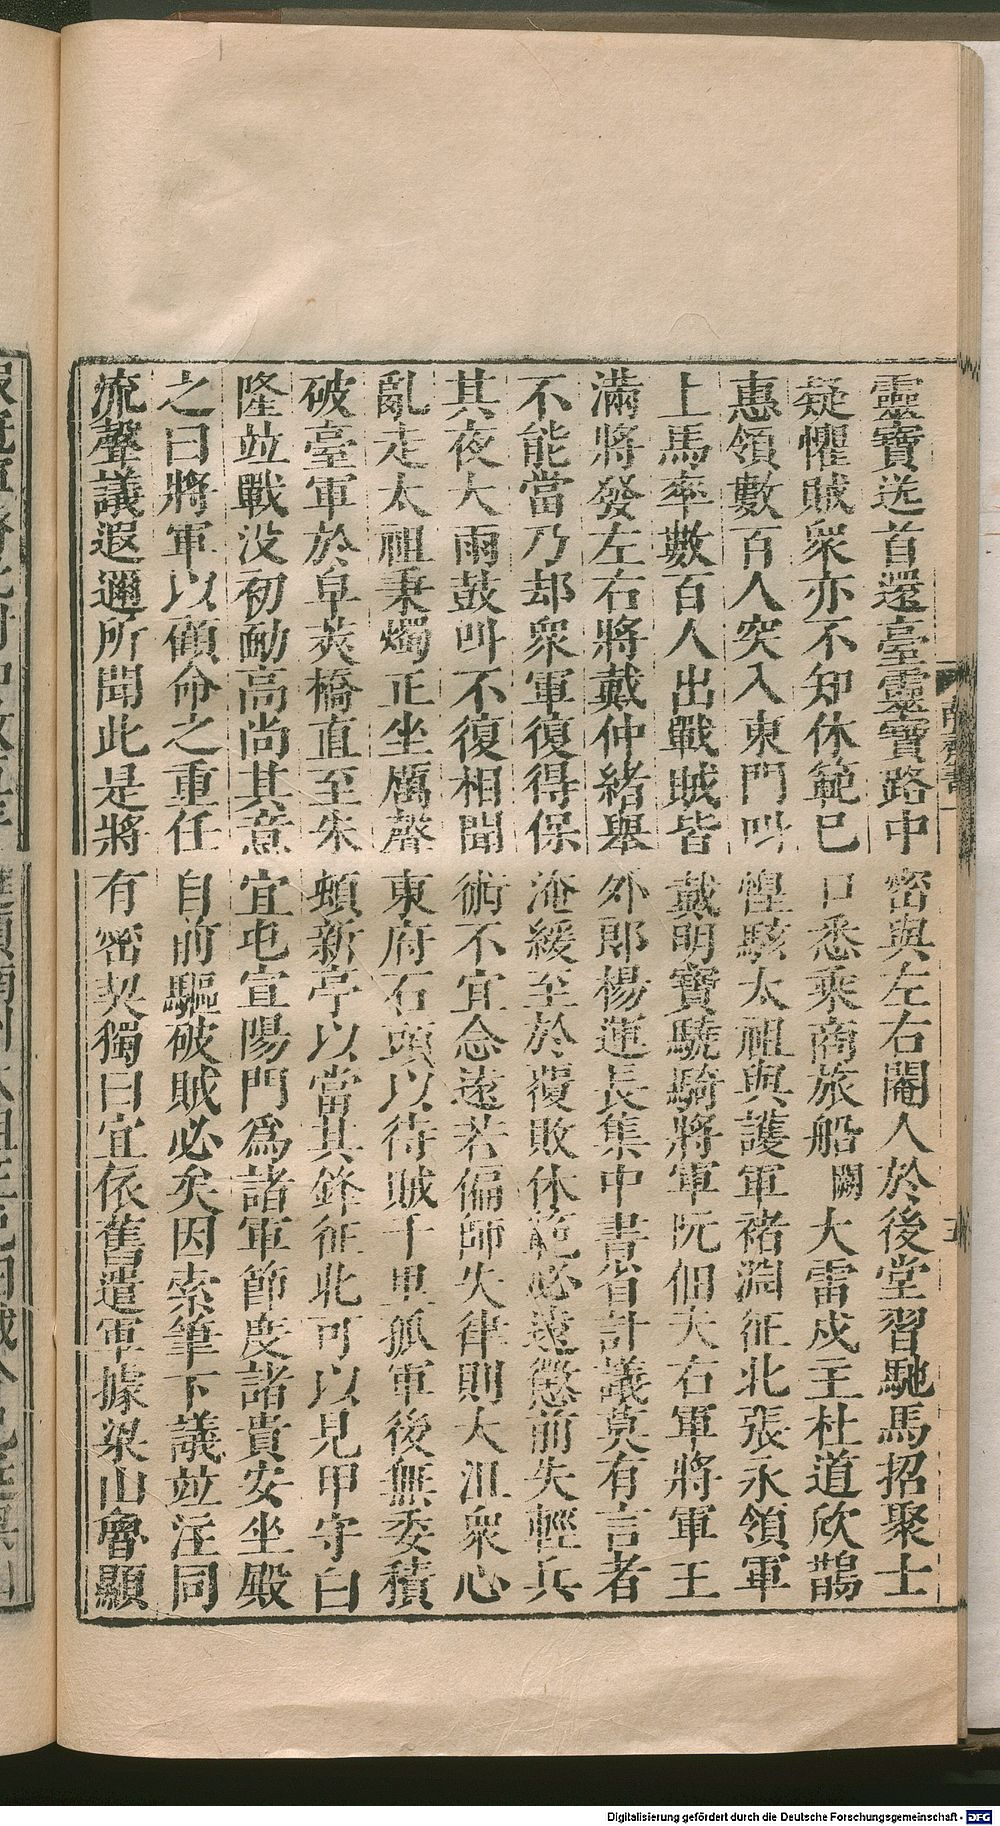 靈寶送首還臺靈寶路中密與左右閹人於後堂習馳馬招聚士
疑懼賊衆亦不知休範已口悉乘商旅船闕大雷戍主杜道欣鵲
惠領數百人突入東門叫惶駭太祖與護軍褚淵征北張永領軍
上馬率數百人出戰賊皆戴明寶驍騎將軍阮佃夫右軍將軍王
滿將發左右將戴仲緒舉外郎楊運長集中書省計議莫有言者
不能當乃却衆軍復得保淹緩至於覆敗休範必遠懲前失輕兵
其夜大雨鼓叫不復相聞術不宜念遠若偏師失律則大沮衆心
亂走太祖秉燭正坐厲聲東府石頭以待賊千里孤軍後無委積
破臺軍於皁莢橋直至朱頓新亭以當其鋒征北可以見甲守白
隆竝戰没初勔高尚其意宜屯宣陽門爲諸軍節度諸貴安坐殿
之曰將軍以顧命之重任自前驅破賊必矣因索筆下議竝注同
流聲議遐邇所聞此是將有密契獨曰宜依舊遣軍據梁山魯顯
Digitalisierung gefördert durch die Deutsche Forschungsgemeinschaft - DFG